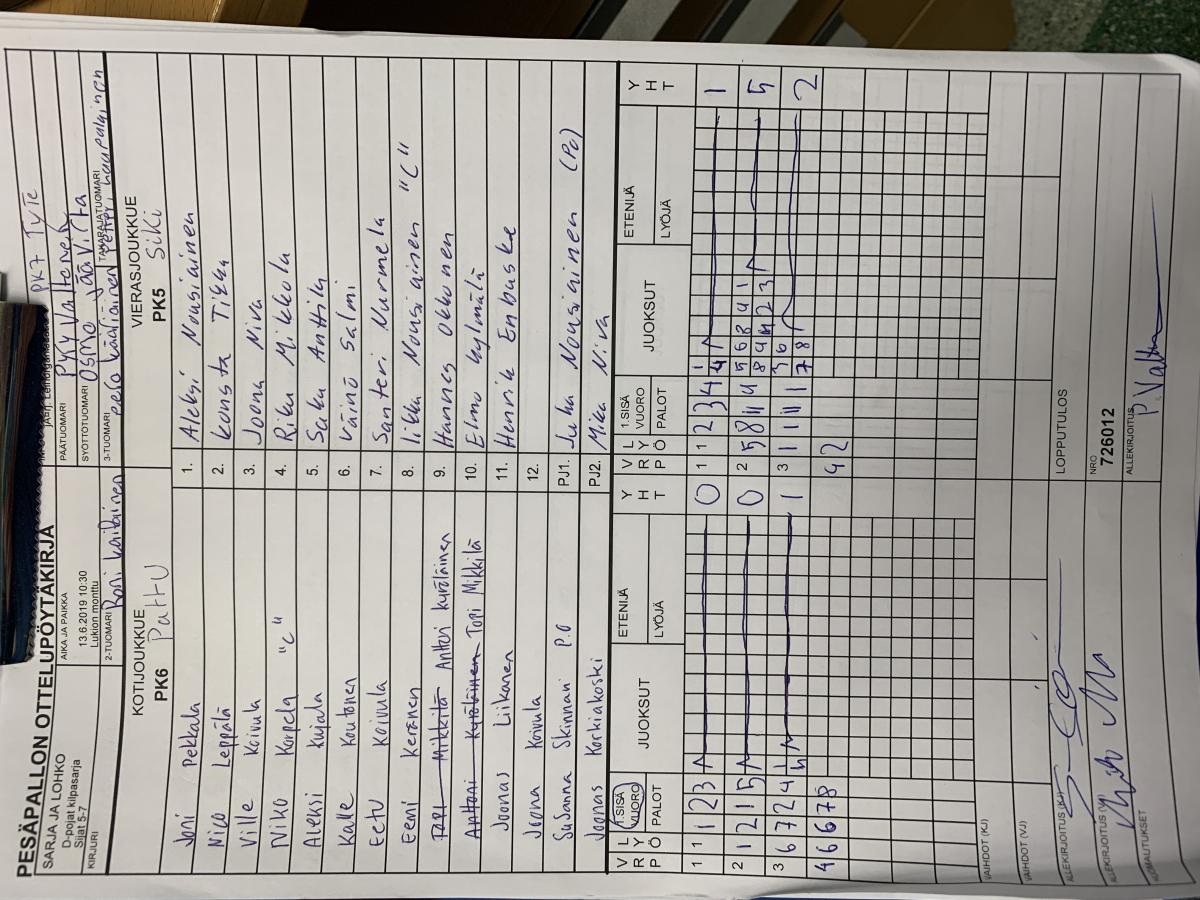 PESÄPALLON OTTELUPÖYTÄKIRJA
PK7 TyTe
SARJA JA LOHKO
D-pojat kilpasarja
Sijat 5-7
KIRJURI
AIKA JA PAIKKA
13.6.2019 10:30
Lukion monttu
PÄÄTUOMARI
Pyry Valtonen
SYÖTTÖTUOMARI
Osmo Jäävirta
2-TUOMARI
Roni Kaipainen
3-TUOMARI
eero Kääriäinen
TAKARAJATUOMARI
KOTIJOUKKUE
PK6 PattU
VIERASJOUKKUE
PK5 SiKi
Joni Pekkala
1. Aleksi Nousiainen
Nico Leppälä
2. Konsta Tikka
Ville Koivula
3. Joona Niva
Niko Korpela "C"
4. Riku Mikkola
Aleksi Kujala
5. Saku Anttila
Kalle Koutonen
6. Väinö Salmi
Eetu Koivula
7. Santeri Nurmela
Eemi Keränen
8. Iikka Nousiainen "C"
Topi Mikkilä Anttoni Kyröläinen
9. Hannes Okkonen
Anttoni Kyröläinen Topi Mikkilä
10. Elmo Kylmälä
Joonas Liikanen
11. Henrik Enbuske
Joona Koivula
12.
Susanna Skinnari P.J
PJ1. Juha Nousiainen (PJ)
Joonas Korkiakoski
PJ2. Mika Niva
V R P L Y Ö
1.SISÄ VUORO
PALOT
JUOKSUT
ETENIJÄ
LYÖJÄ
Y H T
V R P L Y Ö
1.SISÄ VUORO
PALOT
JUOKSUT
ETENIJÄ
LYÖJÄ
Y H T
1 1 1 2 3 0
1 1 2 3 4 1
2 1 2 1 5 0
2 5 8 11 4 5
3 6 7 2 4 1
3 1 11 11 1 2
4 6 6 7 8
4 2
VAIHDOT (KJ)
VAIHDOT (VJ)
ALLEKIRJOITUS (KJ)
LOPPUTULOS
ALLEKIRJOITUS (VJ)
NRO
726012
HUOMAUTUKSET
ALLEKIRJOITUS
P. Valtonen